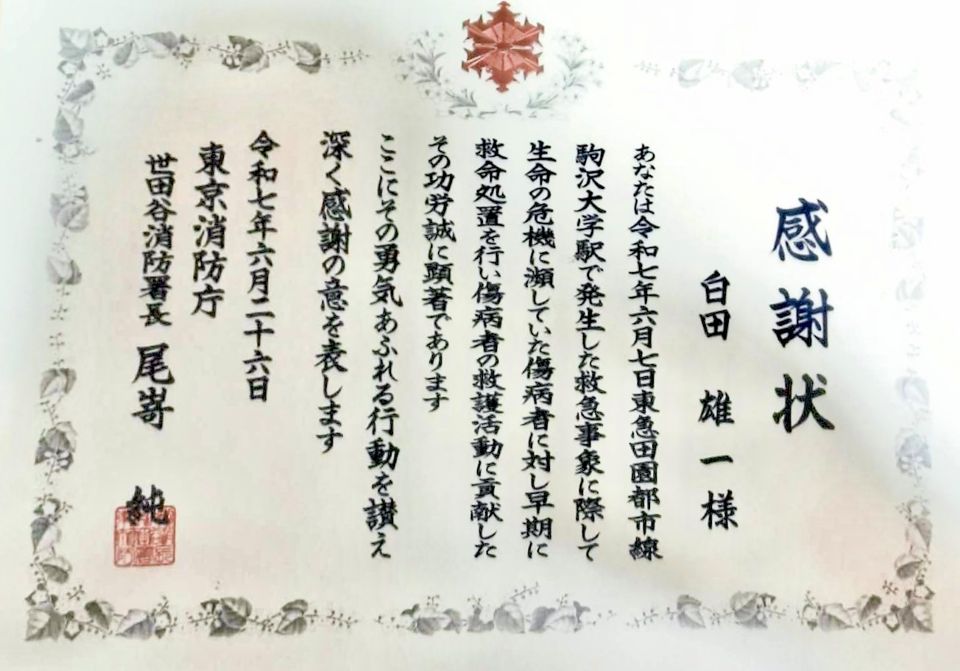 感謝状
臼田 雄一様
あなたは令和七年六月七日東急田園都市線
駒沢大学駅で発生した救急事象に際して
生命の危機に瀕していた傷病者に対し早期に
救命処置を行い傷病者の救護活動に貢献した
その功労誠に顕著であります
ここにその勇気あふれる行動を讃え
深く感謝の意を表します
令和七年六月二十六日
東京消防庁
世田谷消防署長 尾嵜 純